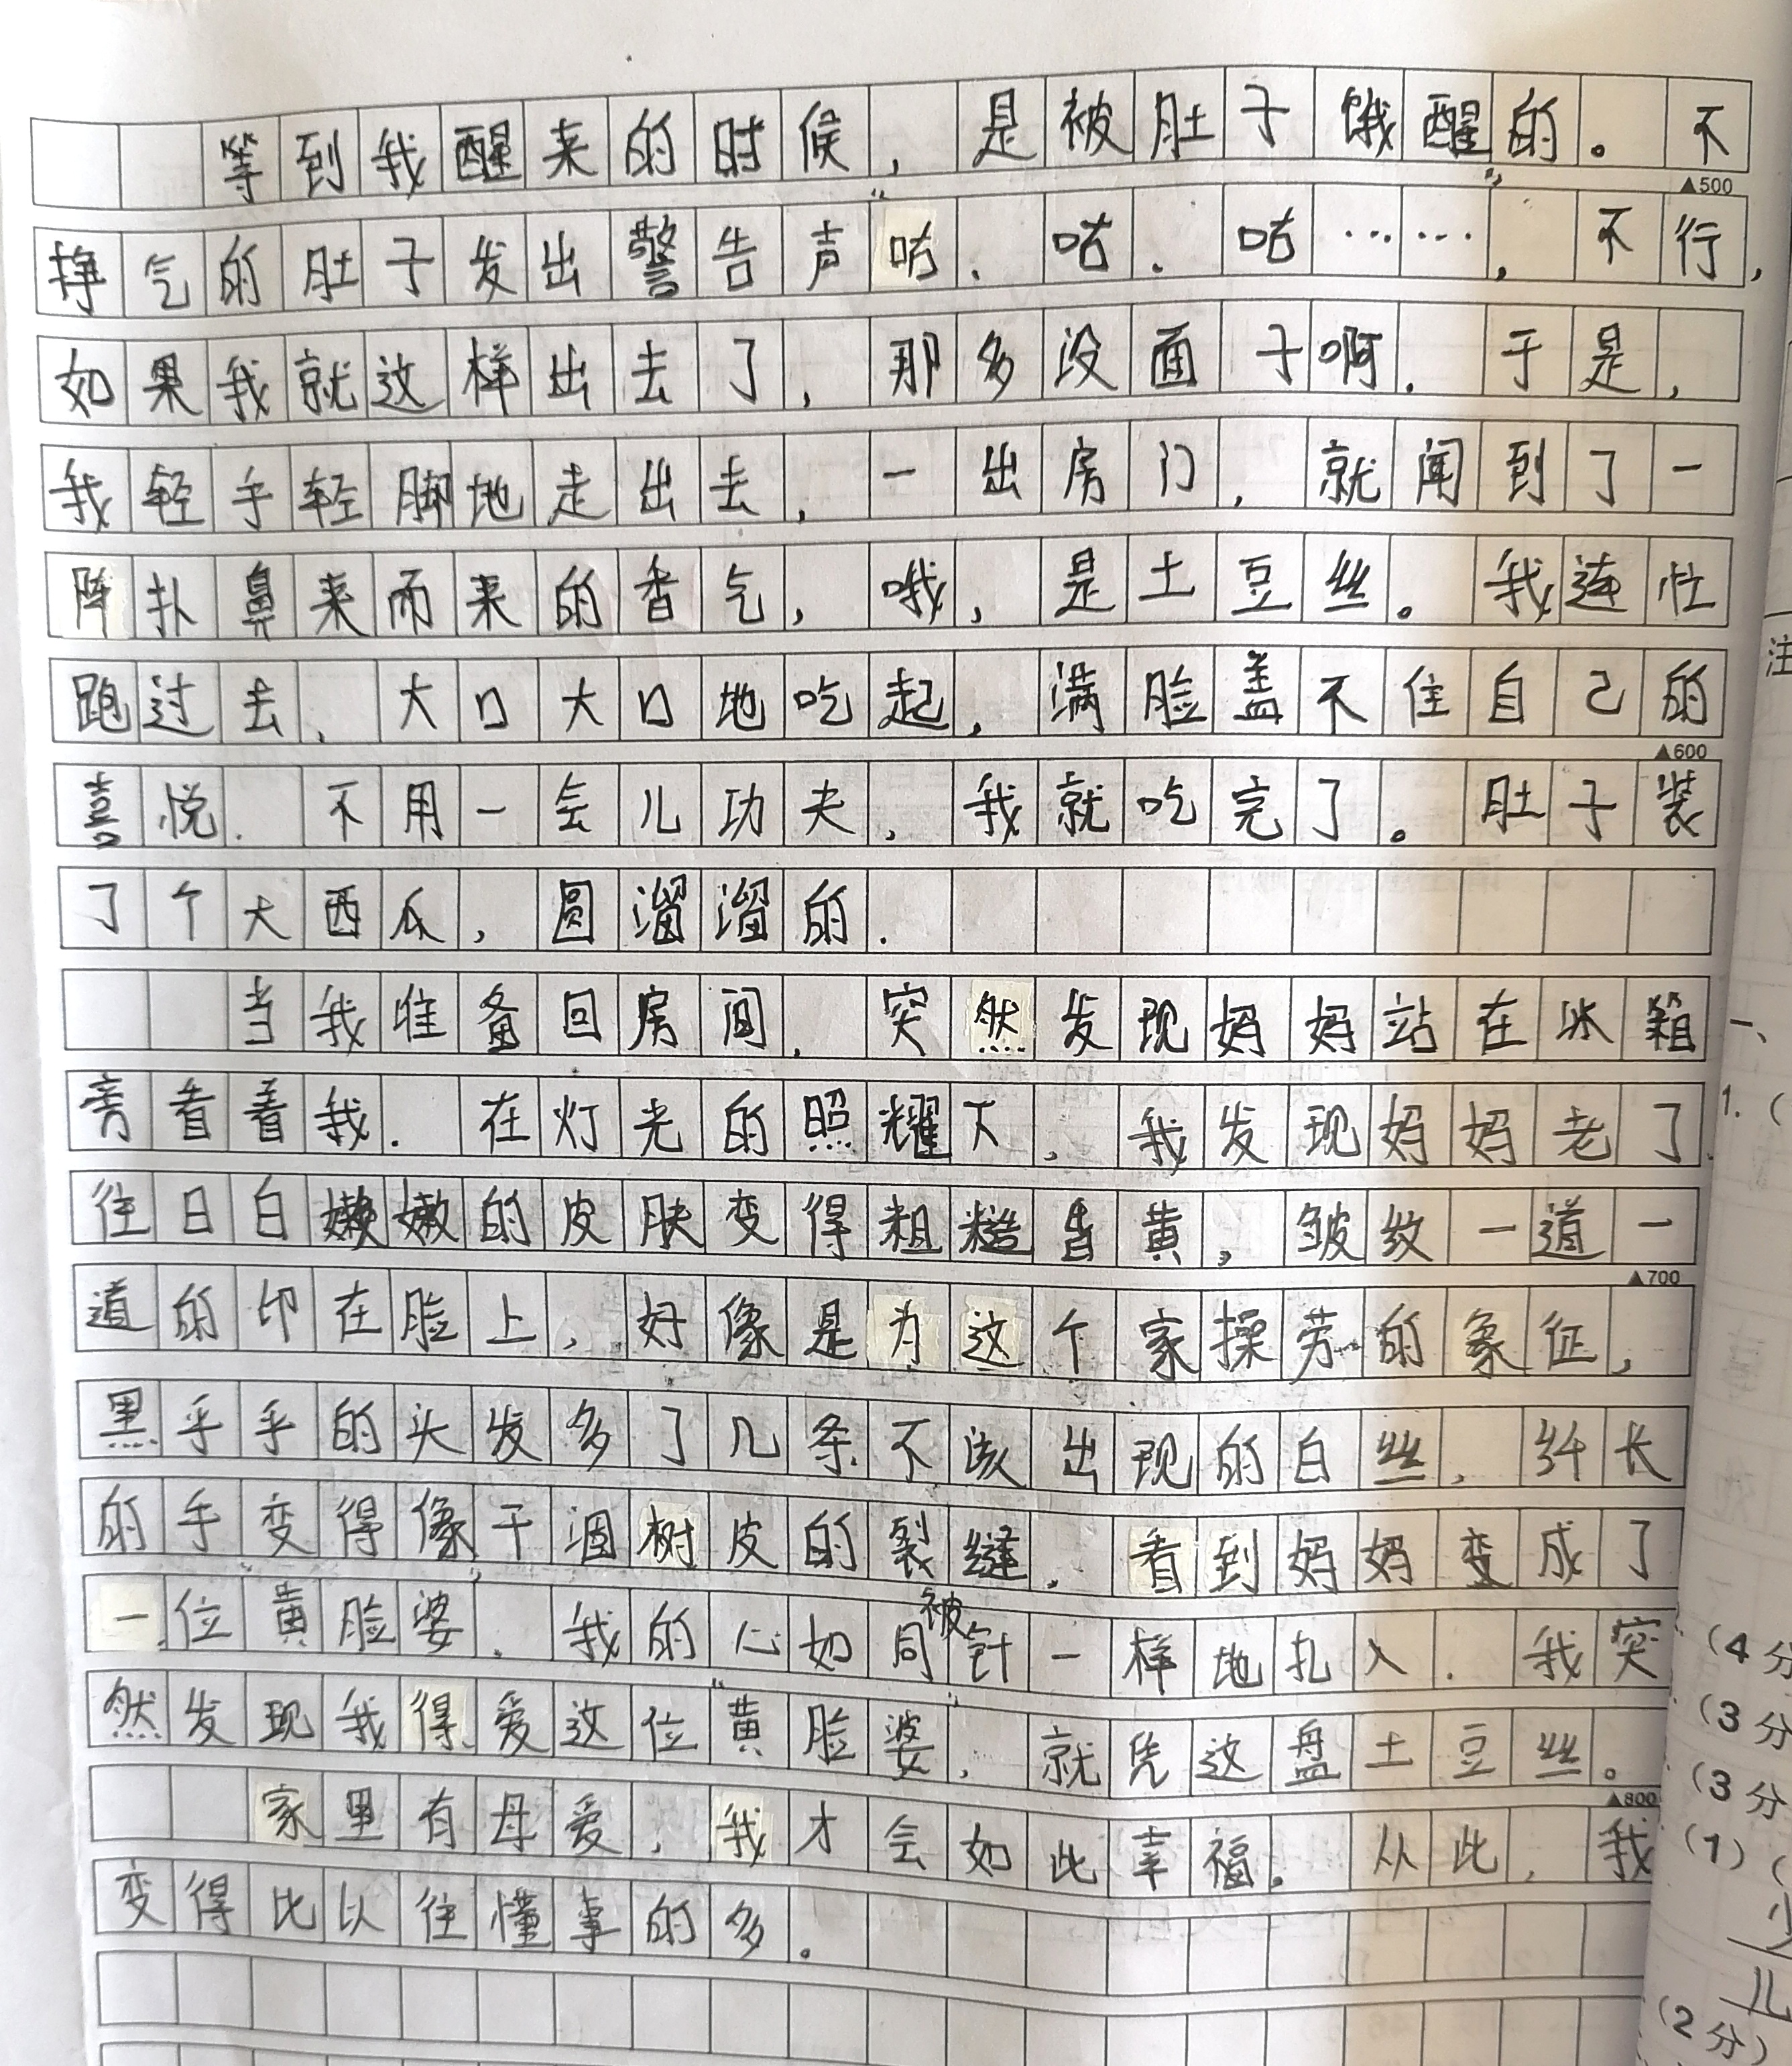 等到我醒来的时候，是被肚子饿醒的。不
▲500
挣气的肚子发出警告声“咕.咕.咕……”，不行，
如果我就这样出去了，那多没面子啊.于是，
我轻手轻脚地走出去，一出房门，就闻到了一
阵扑鼻来而来的香气，哦，是土豆丝。我连忙
跑过去、大口大口地吃起，满脸盖不住自己的
▲600
喜悦.不用一会儿功夫，我就吃完了。肚子装
了个大西瓜，圆溜溜的.
当我准备回房间.突然发现妈妈站在冰箱
旁看着我.在灯光的照耀下，我发现妈妈老了.
往日白嫩嫩的皮肤变得粗糙昏黄，皱纹一道一
▲700
道的印在脸上，好像是为这个家操劳的象征，
黑乎乎的头发多了几条不该出现的白丝，纤长
的手变得像干涸树皮的裂缝，看到妈妈变成了
一位“黄脸婆”.我的心如同被针一样地扎入.我突
然发现我得爱这位“黄脸婆”，就凭这盘土豆丝。
▲800
家里有母爱，我才会如此幸福。从此，我
变得比以往懂事的多。
注
一、
1.（
（4分
（3分
（3分
（1）（
少
儿
（2分）